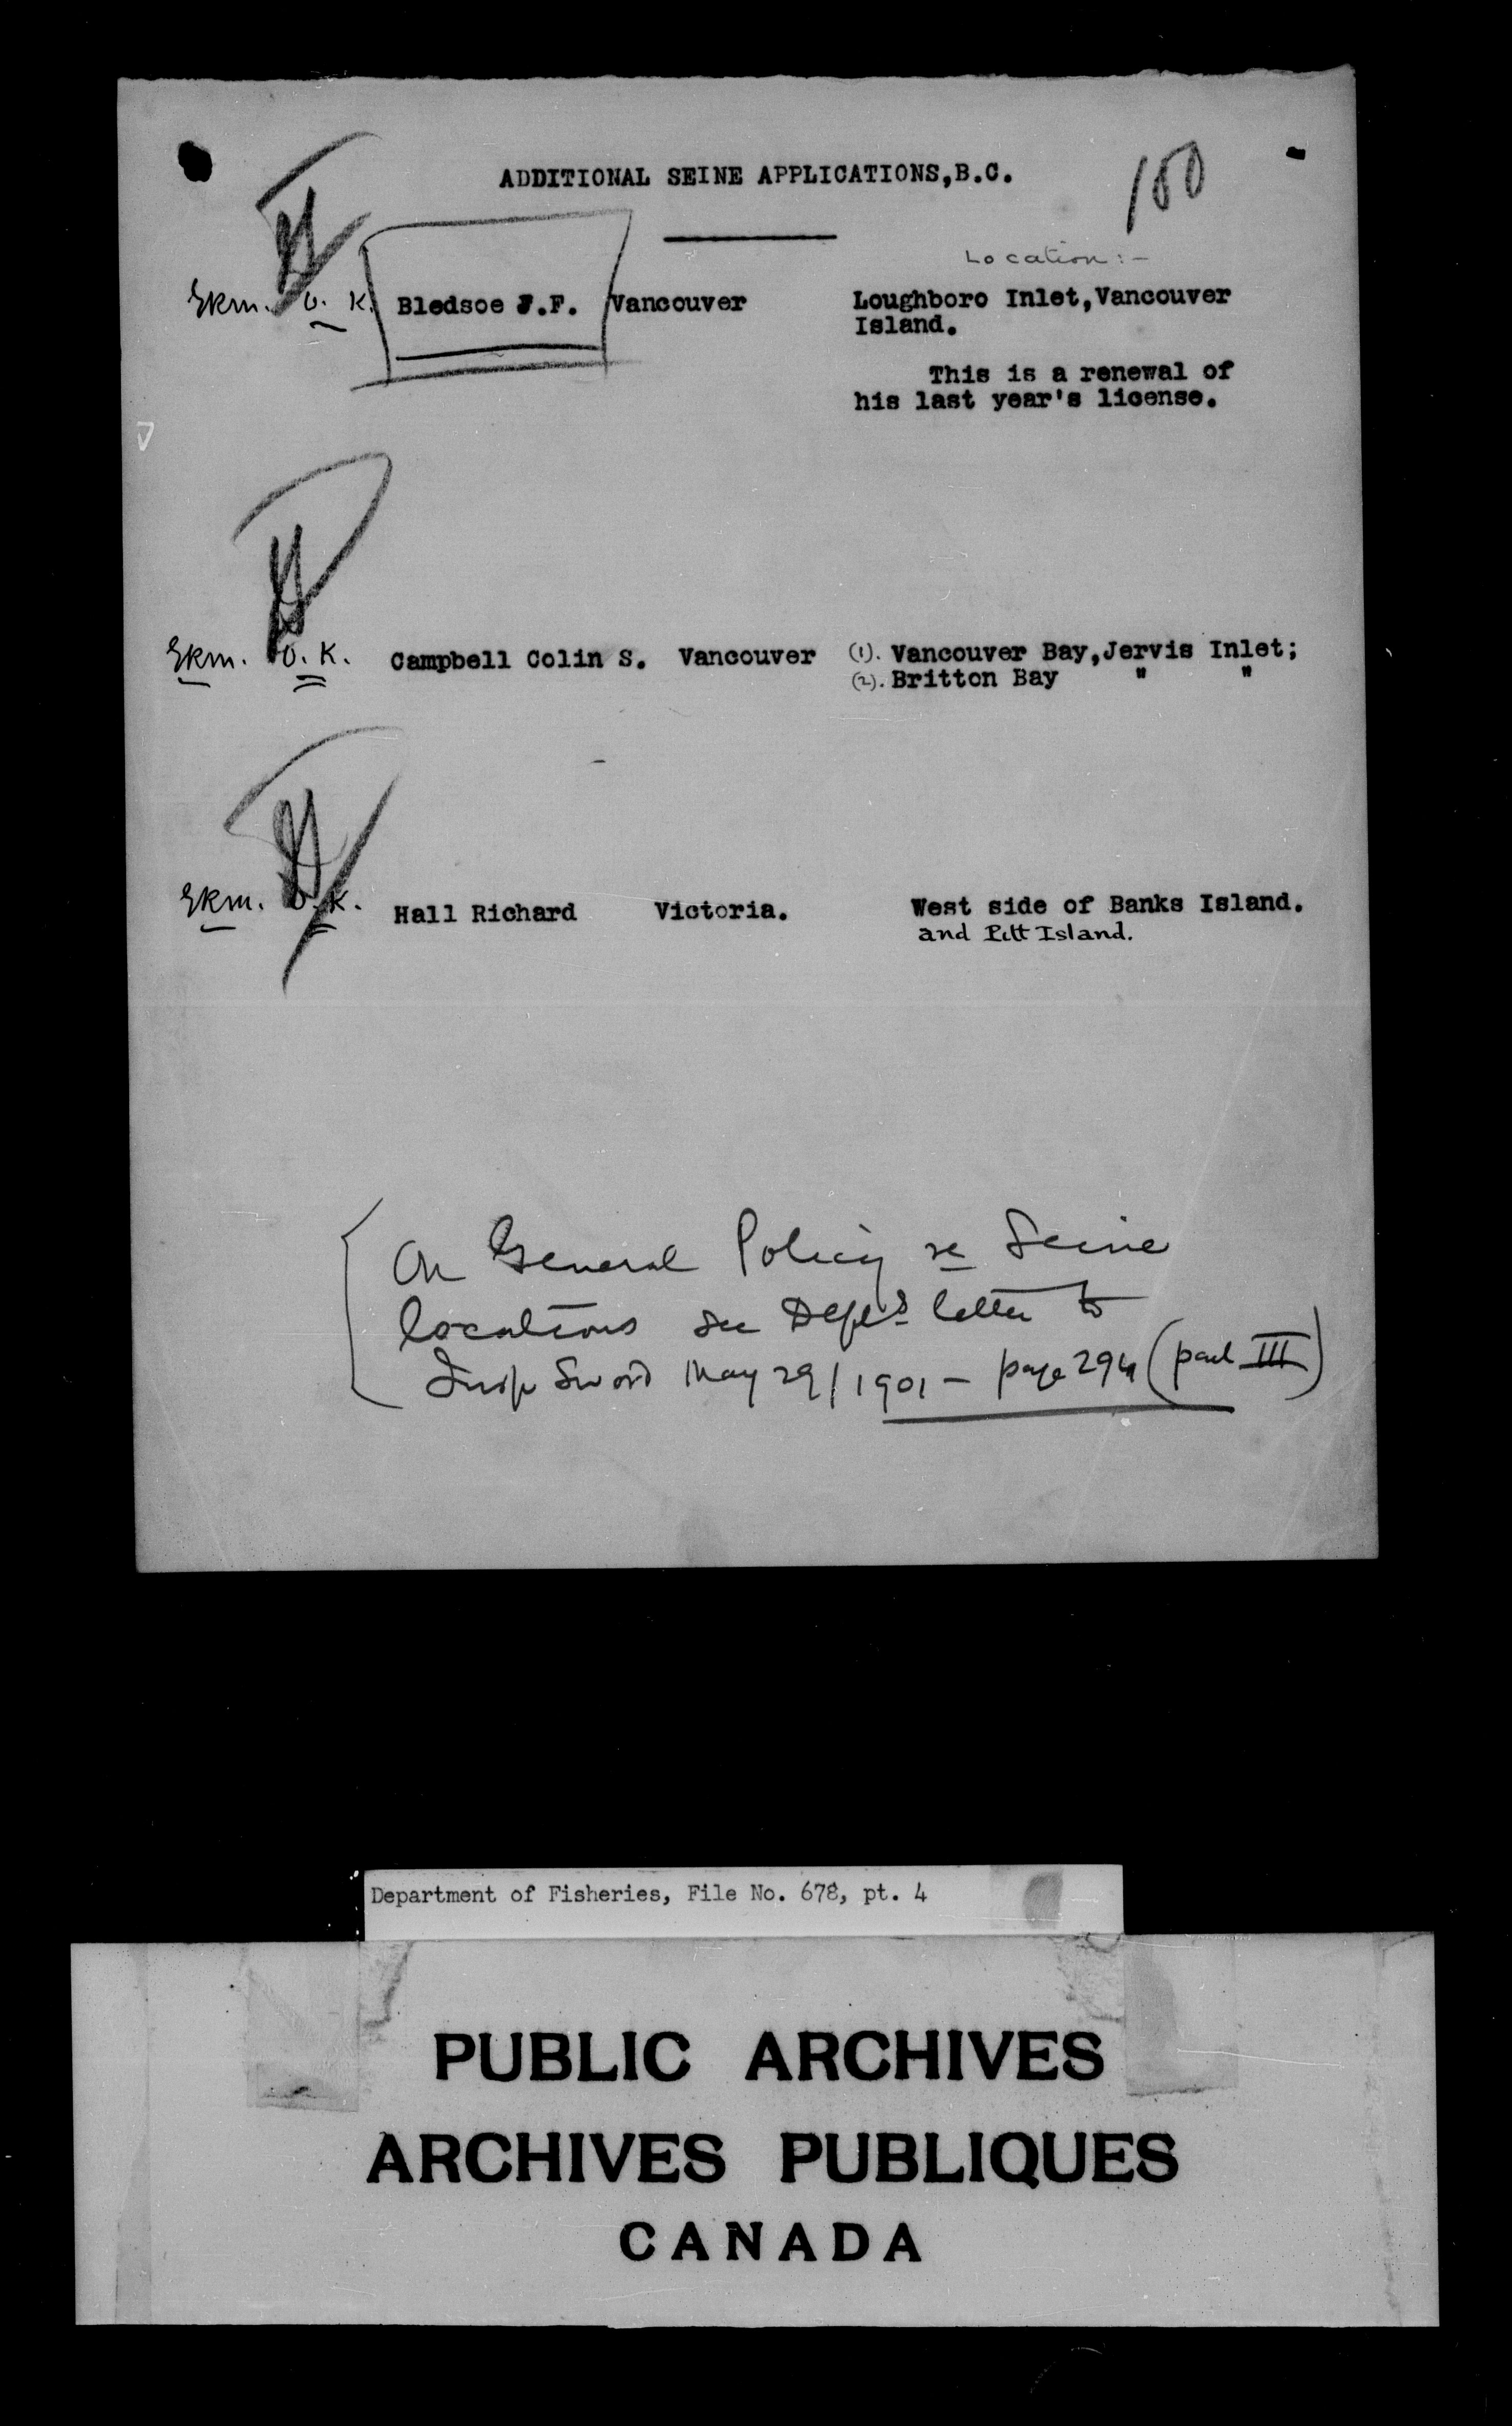 ADDITIONAL SEINE APPLICATIONS,B.C.
100
Location:-
Ekm. O.K. Bledsoe J.F. Vancouver Loughboro Inlet,Vancouver
Island.
This is a renewal of
his last year's license.
Ekm. O.K. Campbell Colin S. Vancouver (1). Vancouver Bay,Jervis Inlet;
(2). Britton Bay " "
Ekm. O.K. Hall Richard Victoria. West side of Banks Island.
and Pitt Island.
On General Policy re Seine
locations see Dept's letter to
Insp Sword May 29/1901 - page 294 (part III)
Department of Fisheries, File No. 678, pt. 4
PUBLIC ARCHIVES
ARCHIVES PUBLIQUES
CANADA